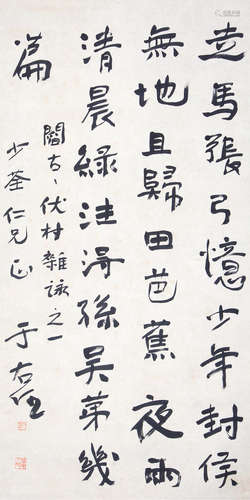 立馬張弓憶少年封侯
無地且歸田芭蕉夜雨
清晨綠注得孫吳第幾
篇
閻古〻伏村雜詠之一
少荃仁兄正
于右任